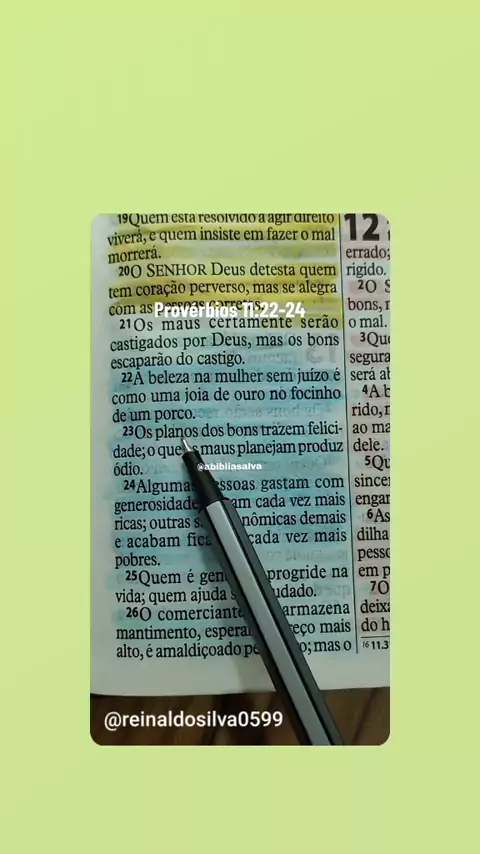 19Quem está resolvido a agir direito
viverá, e quem insiste em fazer o mal
morrerá.
20O SENHOR Deus detesta quem
tem coração perverso, mas se alegra
com as pessoas corretas.
Provérbios 11:22-24
21Os maus certamente serão
castigados por Deus, mas os bons
escaparão do castigo.
22A beleza na mulher sem juízo é
como uma joia de ouro no focinho
de um porco.
23Os planos dos bons trazem felici-
dade; o que os maus planejam produz
ódio.
@abibliasalva
24Algumas pessoas gastam com
generosidade am cada vez mais
ricas; outras nômicas demais
e acabam cada vez mais
pobres.
25Quem é progride na
vida; quem ajuda udado.
26O comerciante armazena
mantimento, eço mais
alto, é amaldiçoado mas o
12
errado;
rigido.
2O S
bons, r
o mal.
3Que
segura
será ab
4A b
rido, r
ao ma
dele.
5Qu
sincer
engar
6As
dilha
pesso
em p
7O
deixa
do h
16 11.3
@reinaldosilva0599